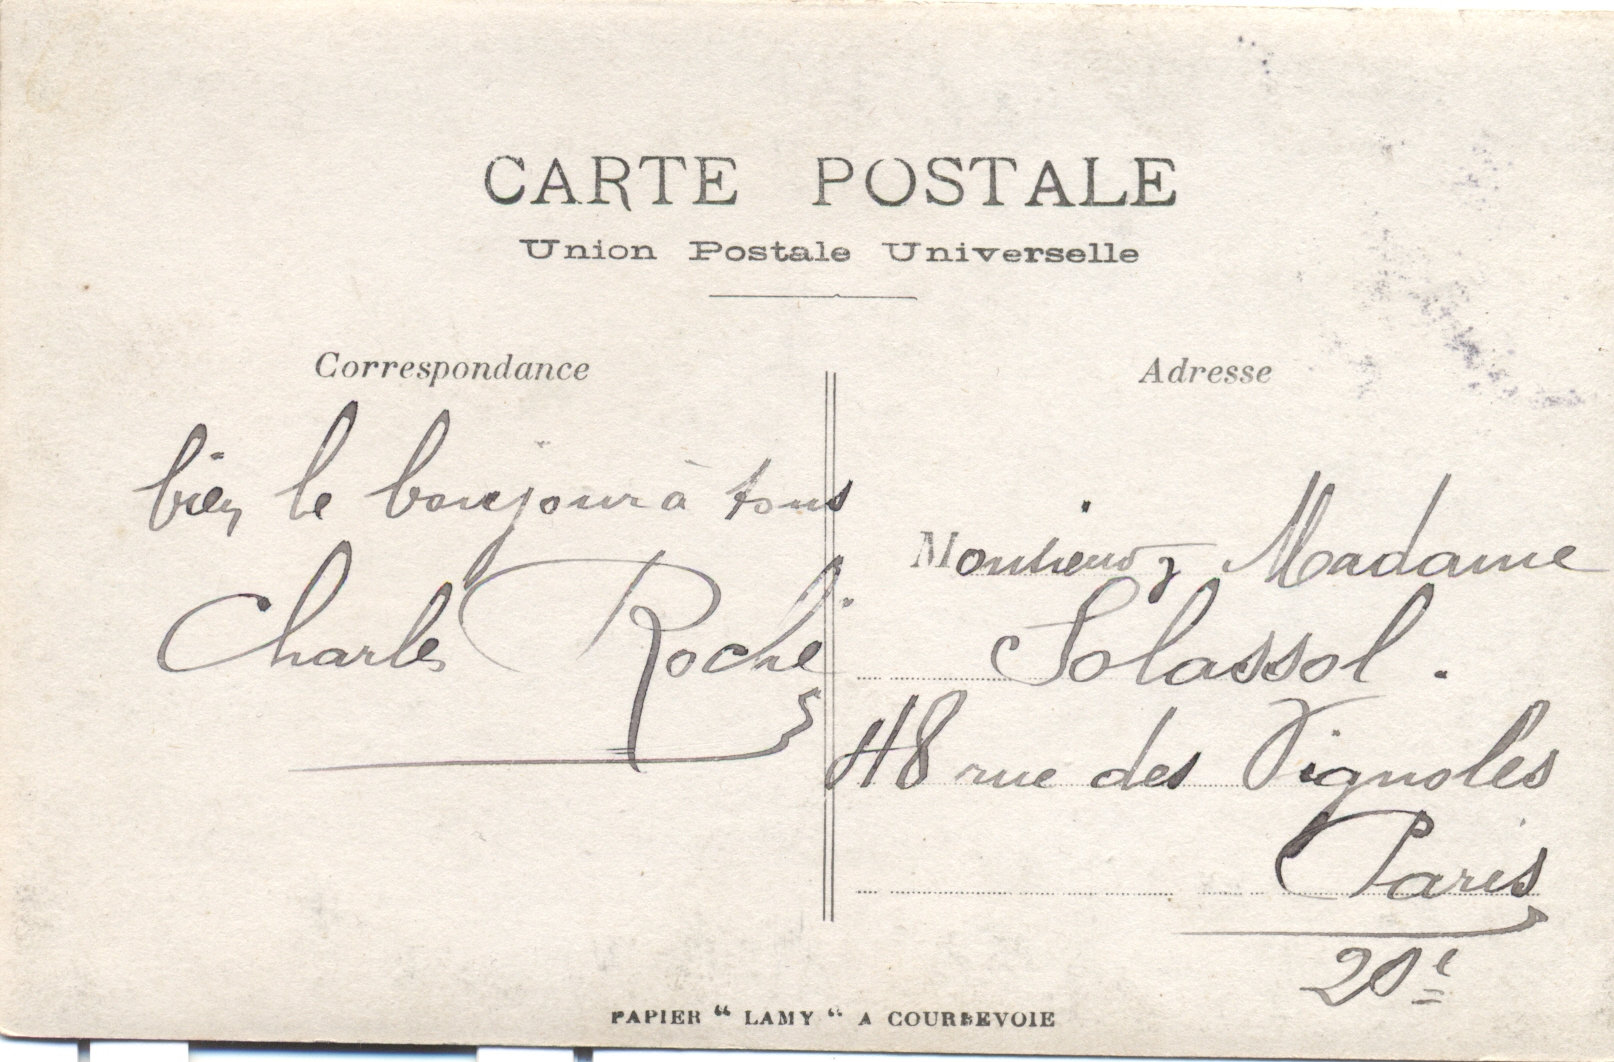 CARTE POSTALE
Union Postale Universelle
Correspondance
Adresse
bien le bonjour à tous
Charles Roche
Monsieur & Madame
Solassol.
48 rue des Vignoles
Paris
20e
PAPIER “ LAMY “ A COURBEVOIE